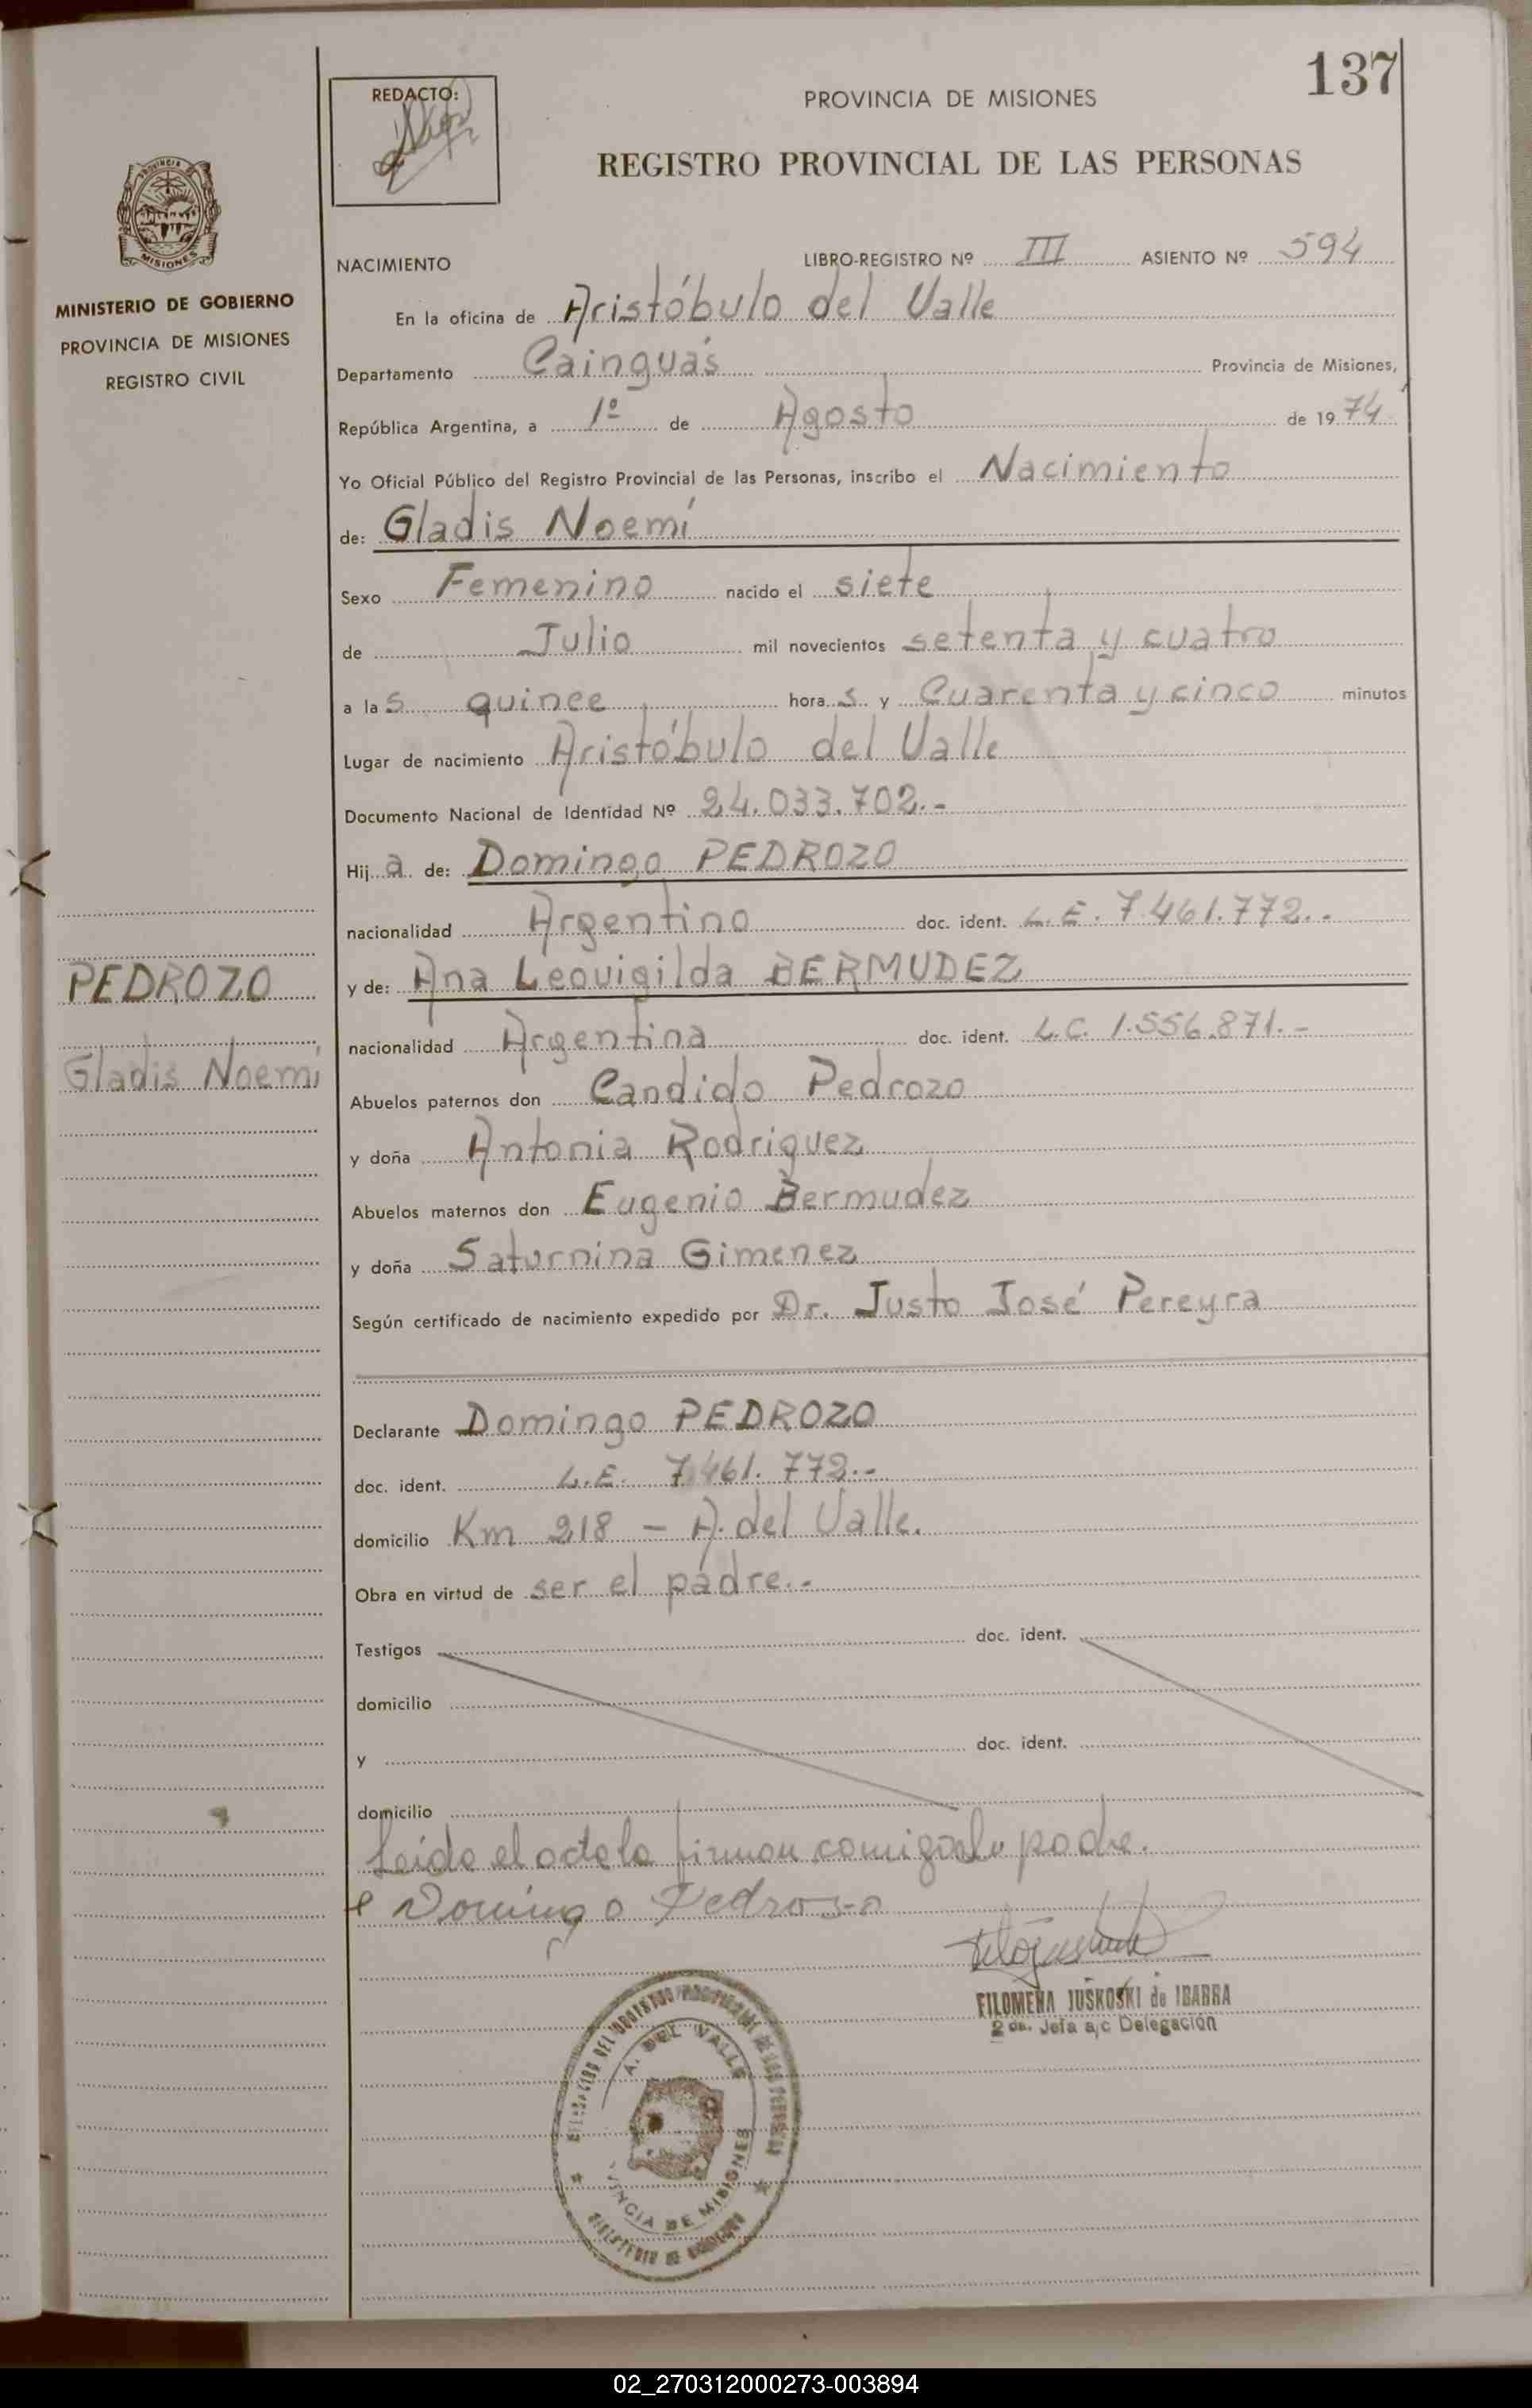 137
REDACTO:
PROVINCIA DE MISIONES
REGISTRO PROVINCIAL DE LAS PERSONAS
PROVINCIA
MISIONES
MINISTERIO DE GOBIERNO
PROVINCIA DE MISIONES
REGISTRO CIVIL
NACIMIENTO LIBRO-REGISTRO Nº III ASIENTO Nº 594
En la oficina de Aristóbulo del Valle
Departamento Cainguás Provincia de Misiones,
República Argentina, a 1º de Agosto de 1974
Yo Oficial Público del Registro Provincial de las Personas, inscribo el Nacimiento
de: Gladis Noemí
Sexo Femenino nacido el siete
de Julio mil novecientos setenta y cuatro
a las quince horas y Cuarenta y cinco minutos
Lugar de nacimiento Aristóbulo del Valle
Documento Nacional de Identidad Nº 24.033.702.-
Hija de: Domingo PEDROZO
nacionalidad Argentino doc. ident. L.E. 7.461.772.-
PEDROZO
y de: Ana Leovigilda BERMUDEZ
nacionalidad Argentina doc. ident. L.C. 1.556.871.-
Gladis Noemí
Abuelos paternos don Candido Pedrozo
y doña Antonia Rodriguez
Abuelos maternos don Eugenio Bermudez
y doña Saturnina Gimenez
Según certificado de nacimiento expedido por Dr. Justo José Pereyra
Declarante Domingo PEDROZO
doc. ident. L.E. 7.461.772.-
domicilio Km 218 - A. del Valle.
Obra en virtud de ser el padre.-
Testigos doc. ident.
domicilio
y doc. ident.
domicilio
Leida el acta la firman comigo el padre.
Domingo Pedrozo
FILOMENA JUSKOSKI de IBARRA
2da. Jefa a/c Delegación
DELEGACION DEL REGISTRO PROVINCIAL DE LAS PERSONAS
A. DEL VALLE
PROVINCIA DE MISIONES
MINISTERIO DE GOBIERNO
02_270312000273-003894